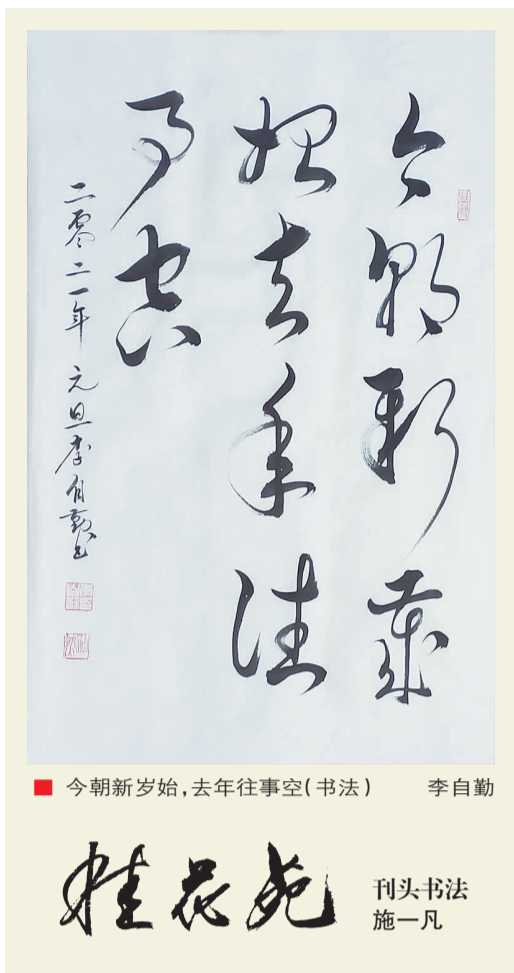 今朝新岁
始去年往
事空
二零二一年元旦李自勤书
■ 今朝新岁始,去年往事空(书法) 李自勤
桂花苑
刊头书法
施一凡